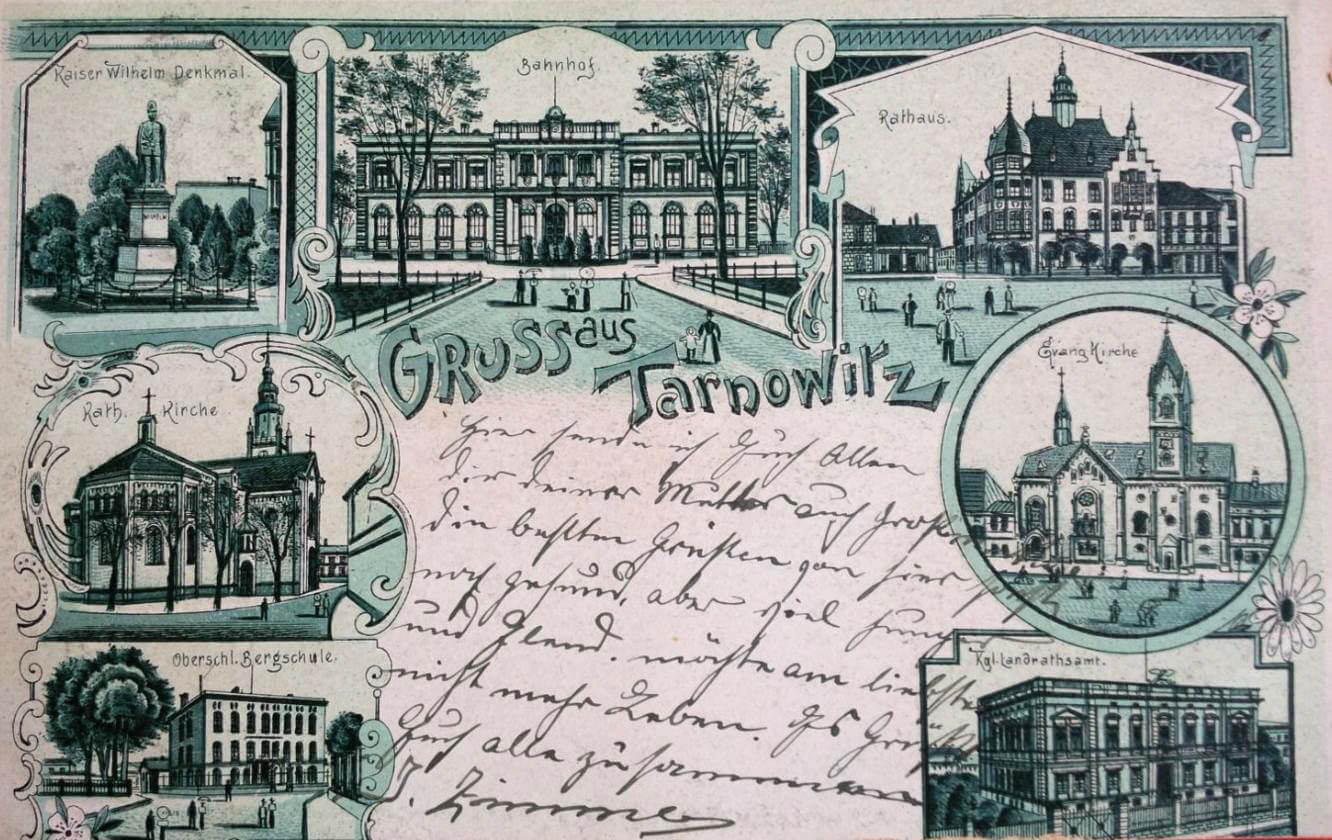 Kaiser Wilhelm Denkmal.
Bahnhof.
Rathaus.
WILHELM
GRUSS aus
Tarnowitz
Kath. Kirche
Evang Kirche
Oberschl. Bergschule.
Kgl. Landrathsamt.
Hier sende ich Euch Allen
die deiner Mutter auch
die besten Grüßen von hier
noch gesund, aber viel
und Elend. möchte am liebsten
nicht mehr Leben. Es
Euch alle zusammen